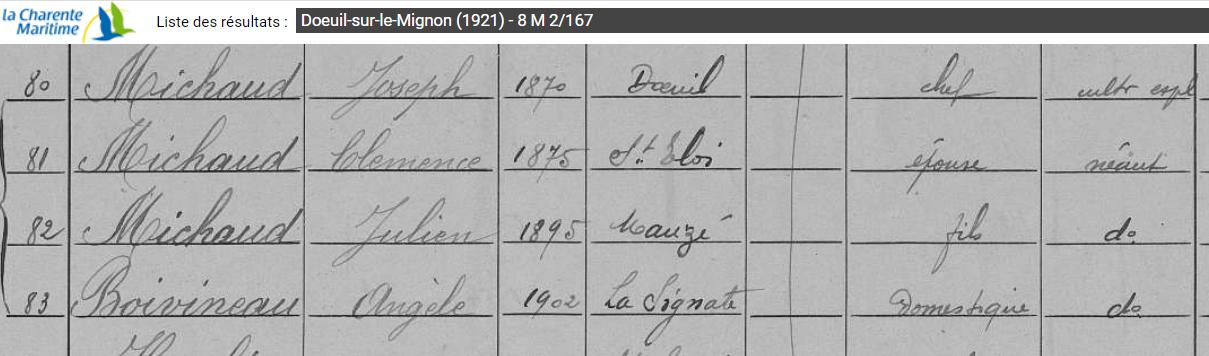 la Charente
Maritime
Liste des résultats : Doeuil-sur-le-Mignon (1921) - 8 M 2/167
80 Michaud Joseph 1870 Doeuil chef cultr expl
81 Michaud Clemence 1875 St Eloi épouse néant
82 Michaud Julien 1895 Mauzé fils do
83 Boivineau Angèle 1902 La Signate Domestique do